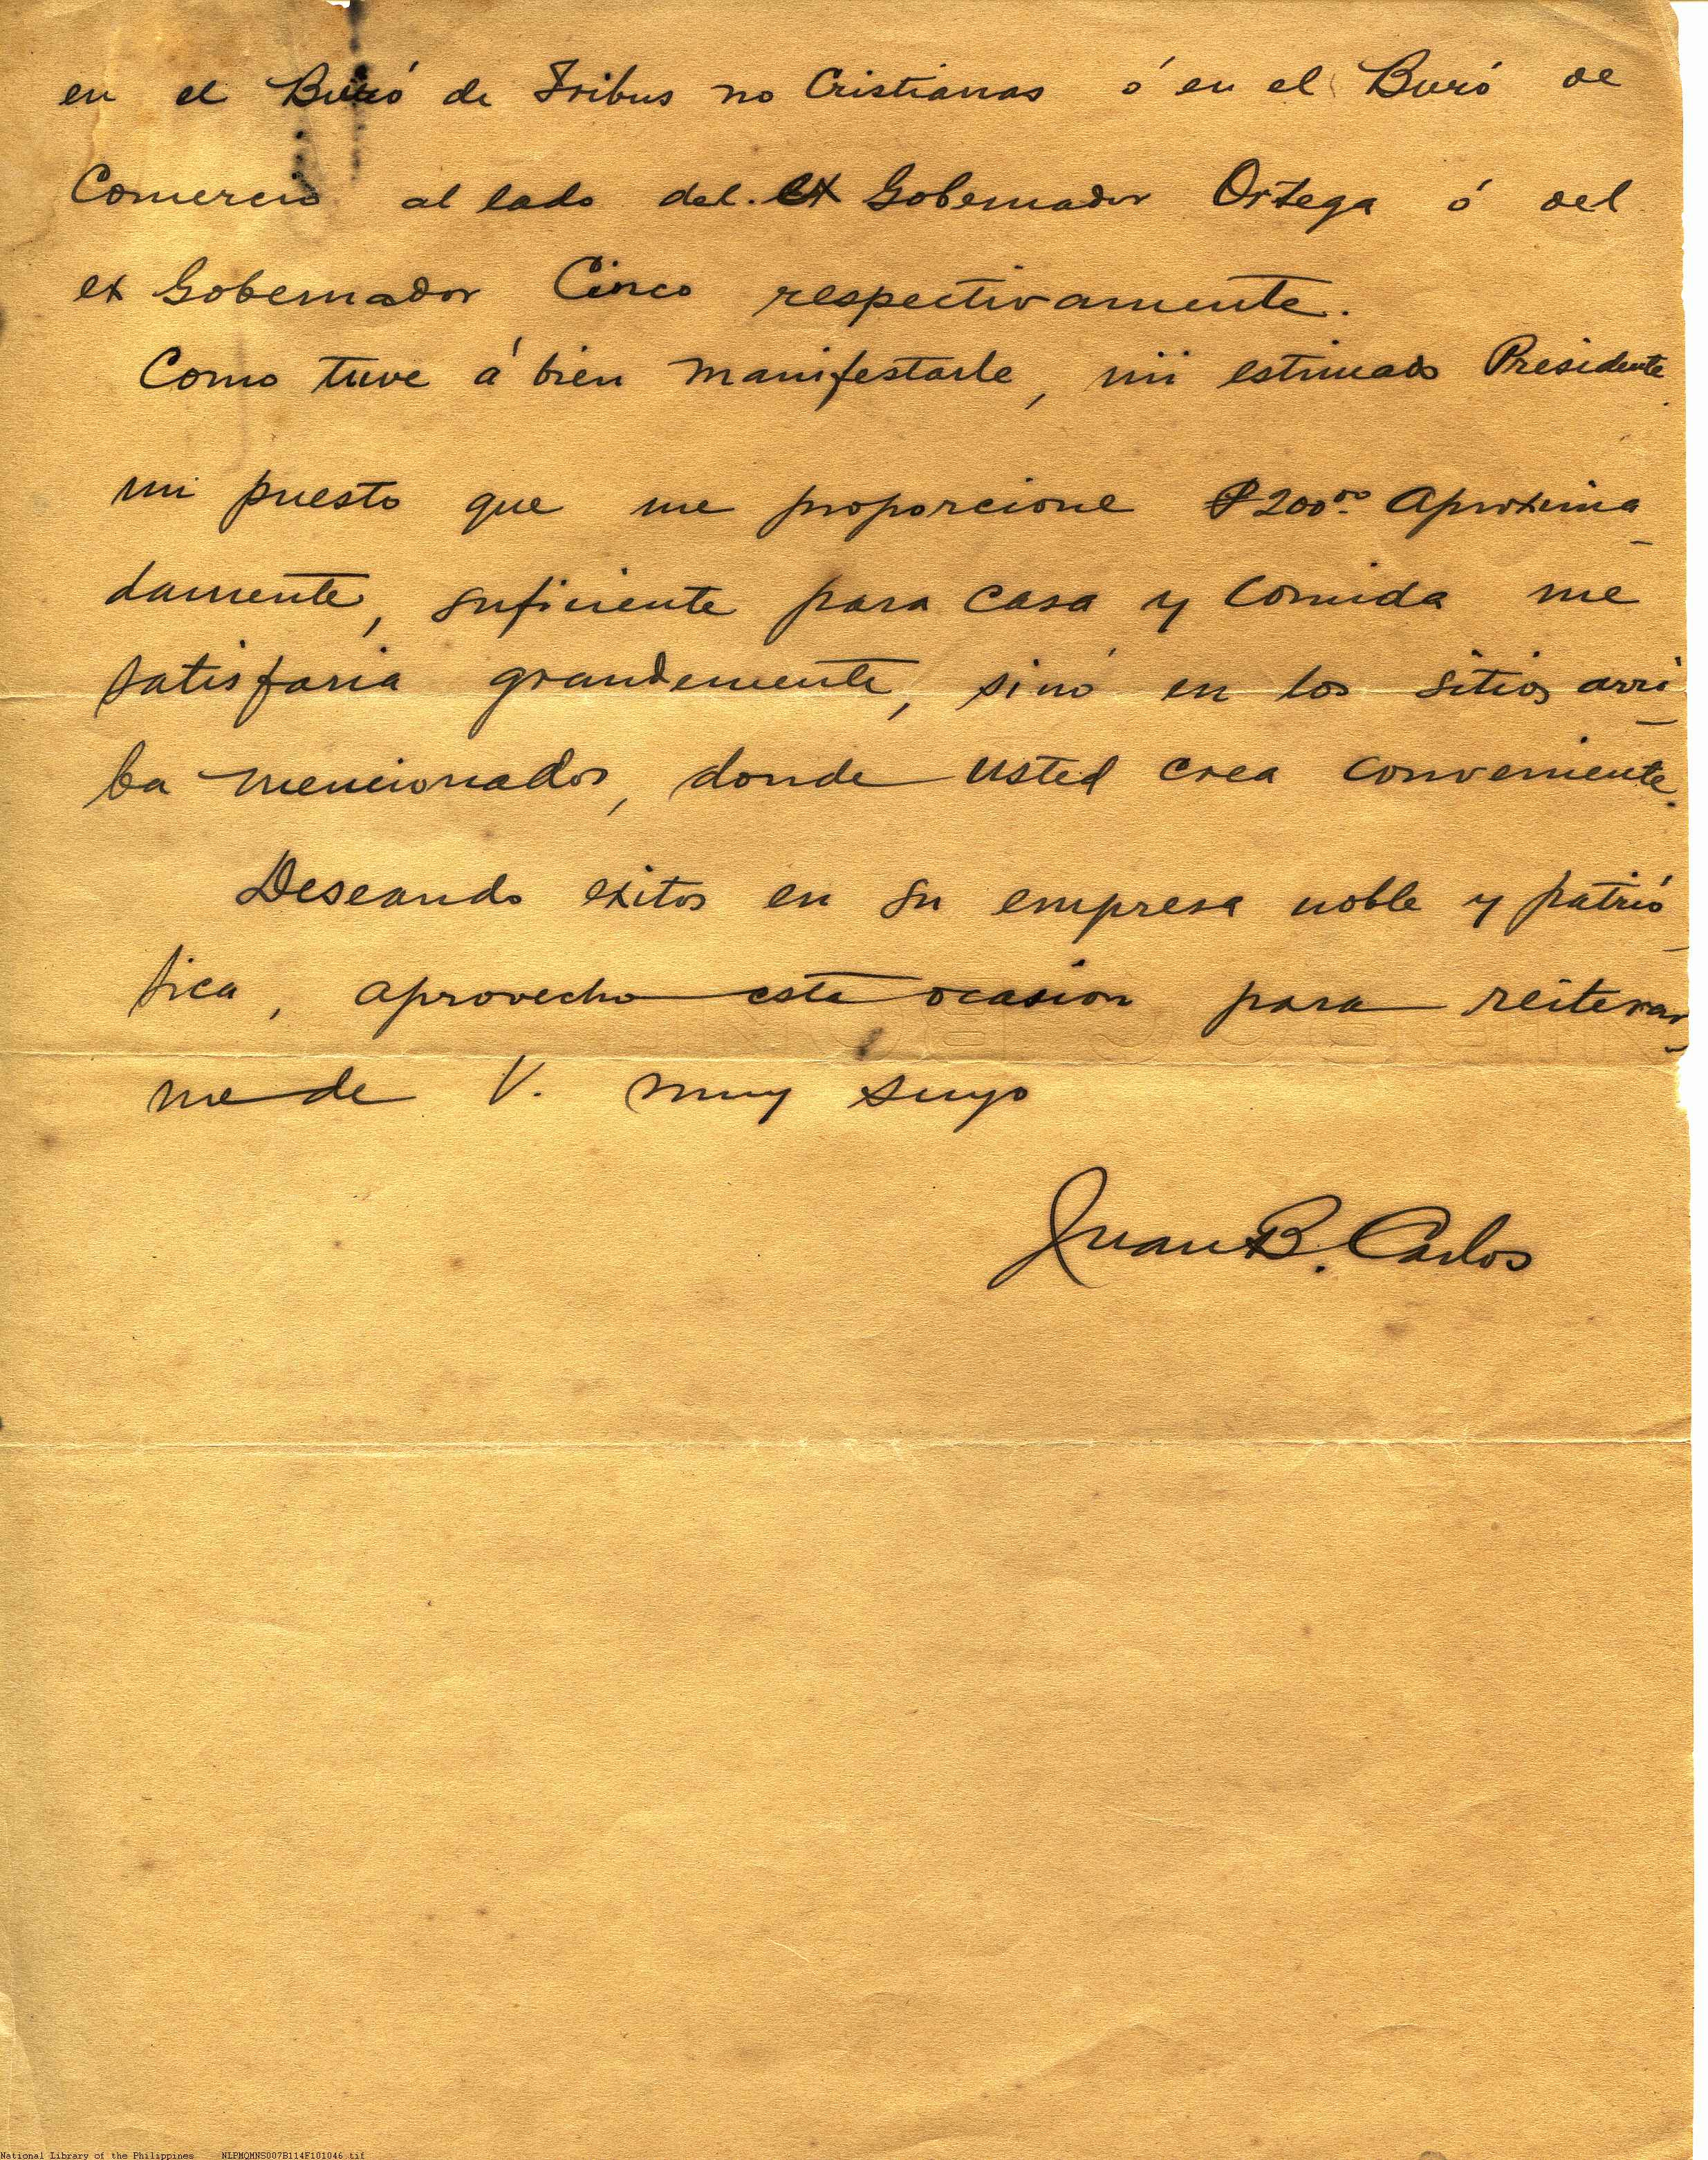 en el Buró de Tribus no Cristianas ó en el Buró de
Comercio al lado del ex Gobernador Ortega ó del
ex Gobernador Cinco respectivamente.
Como tuve á bien manifestarle, mi estimado Presidente
un puesto que me proporcione ₱200.00 Aproxima-
damente, suficiente para casa y comida me
satisfaria grandemente, sinó en los sitios arri-
ba mencionados, donde usted crea conveniente.
Deseando exitos en su empresa noble y patrió-
tica, aprovecho esta ocasion para reiterar-
me de V. muy suyo
Juan B. Carlos
National Library of the Philippines NLPMQMNS007B114F101046.tif